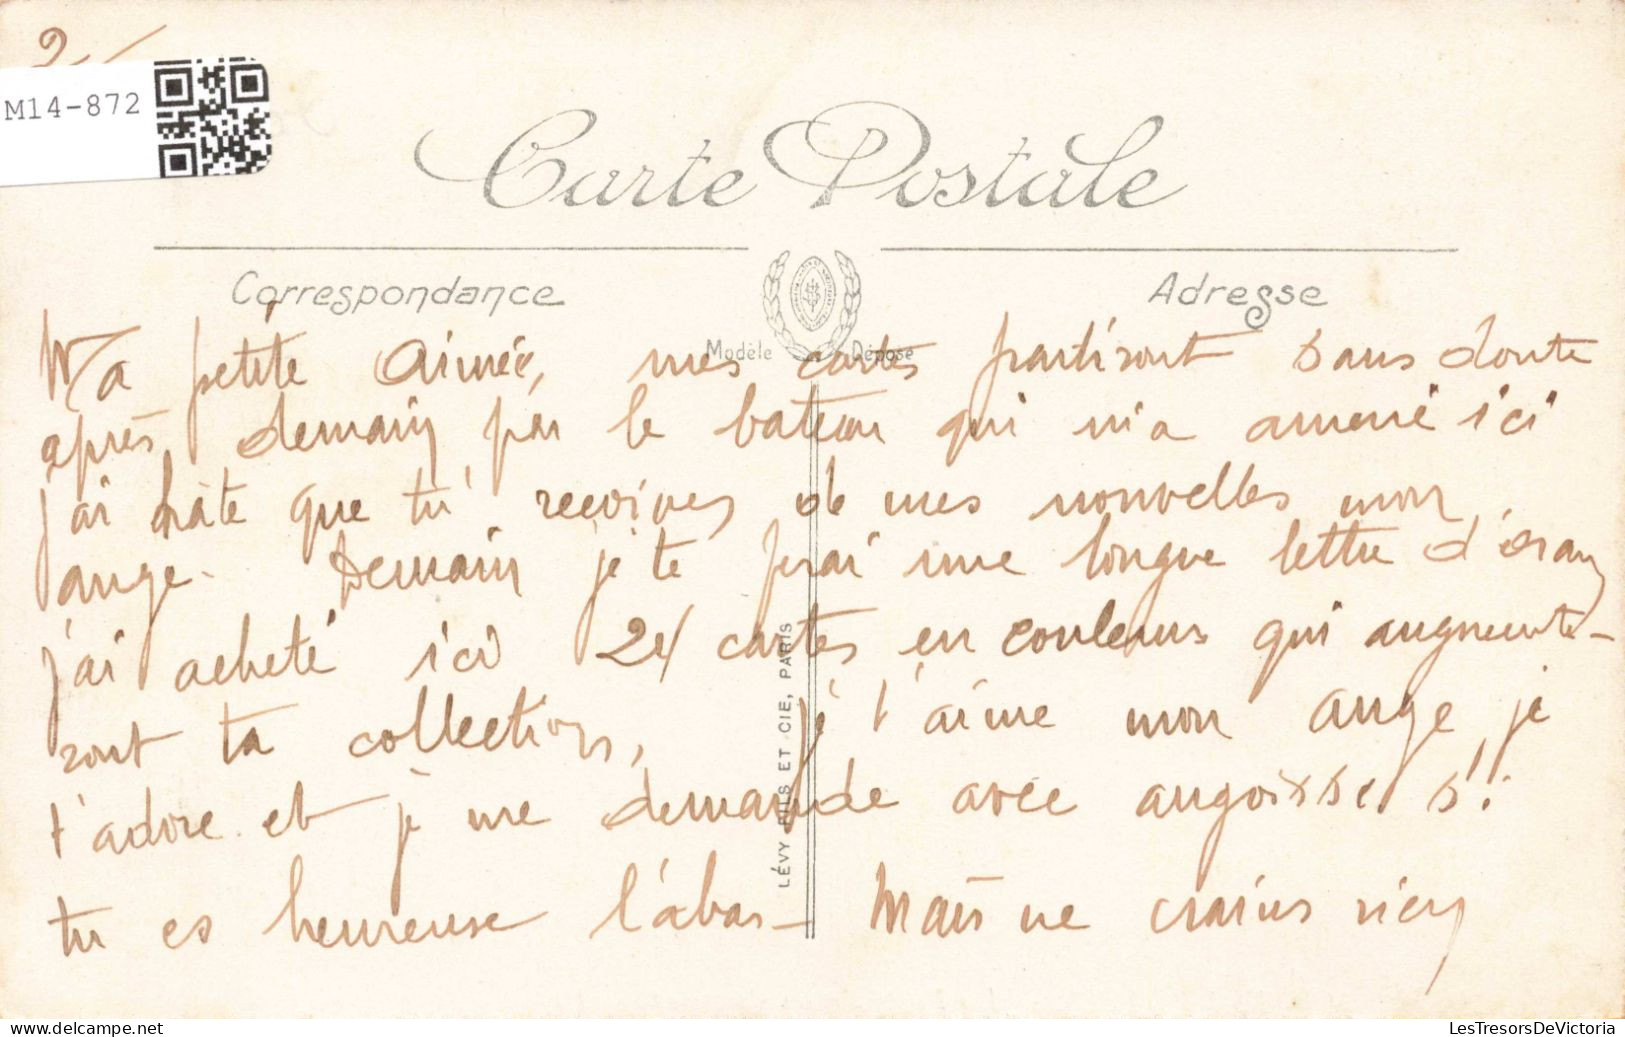 2
M14-872
Carte Postale
Correspondance
Modèle Déposé
Adresse
Ma petite Aimée, mes cartes partiront sans doute
après demain par le bateau qui m'a amené ici
j'ai hâte que tu reçoives de mes nouvelles mon
ange. Demain je te ferai une longue lettre d'oran
j'ai acheté ici 24 cartes en couleurs qui augmente-
ront ta collection, je t'aime mon ange, je
t'adore et je me demande avec angoisse si
tu es heureuse là bas - Mais ne crains rien
LÉVY FILS ET CIE, PARIS
LesTresorsDeVictoria
www.delcampe.net